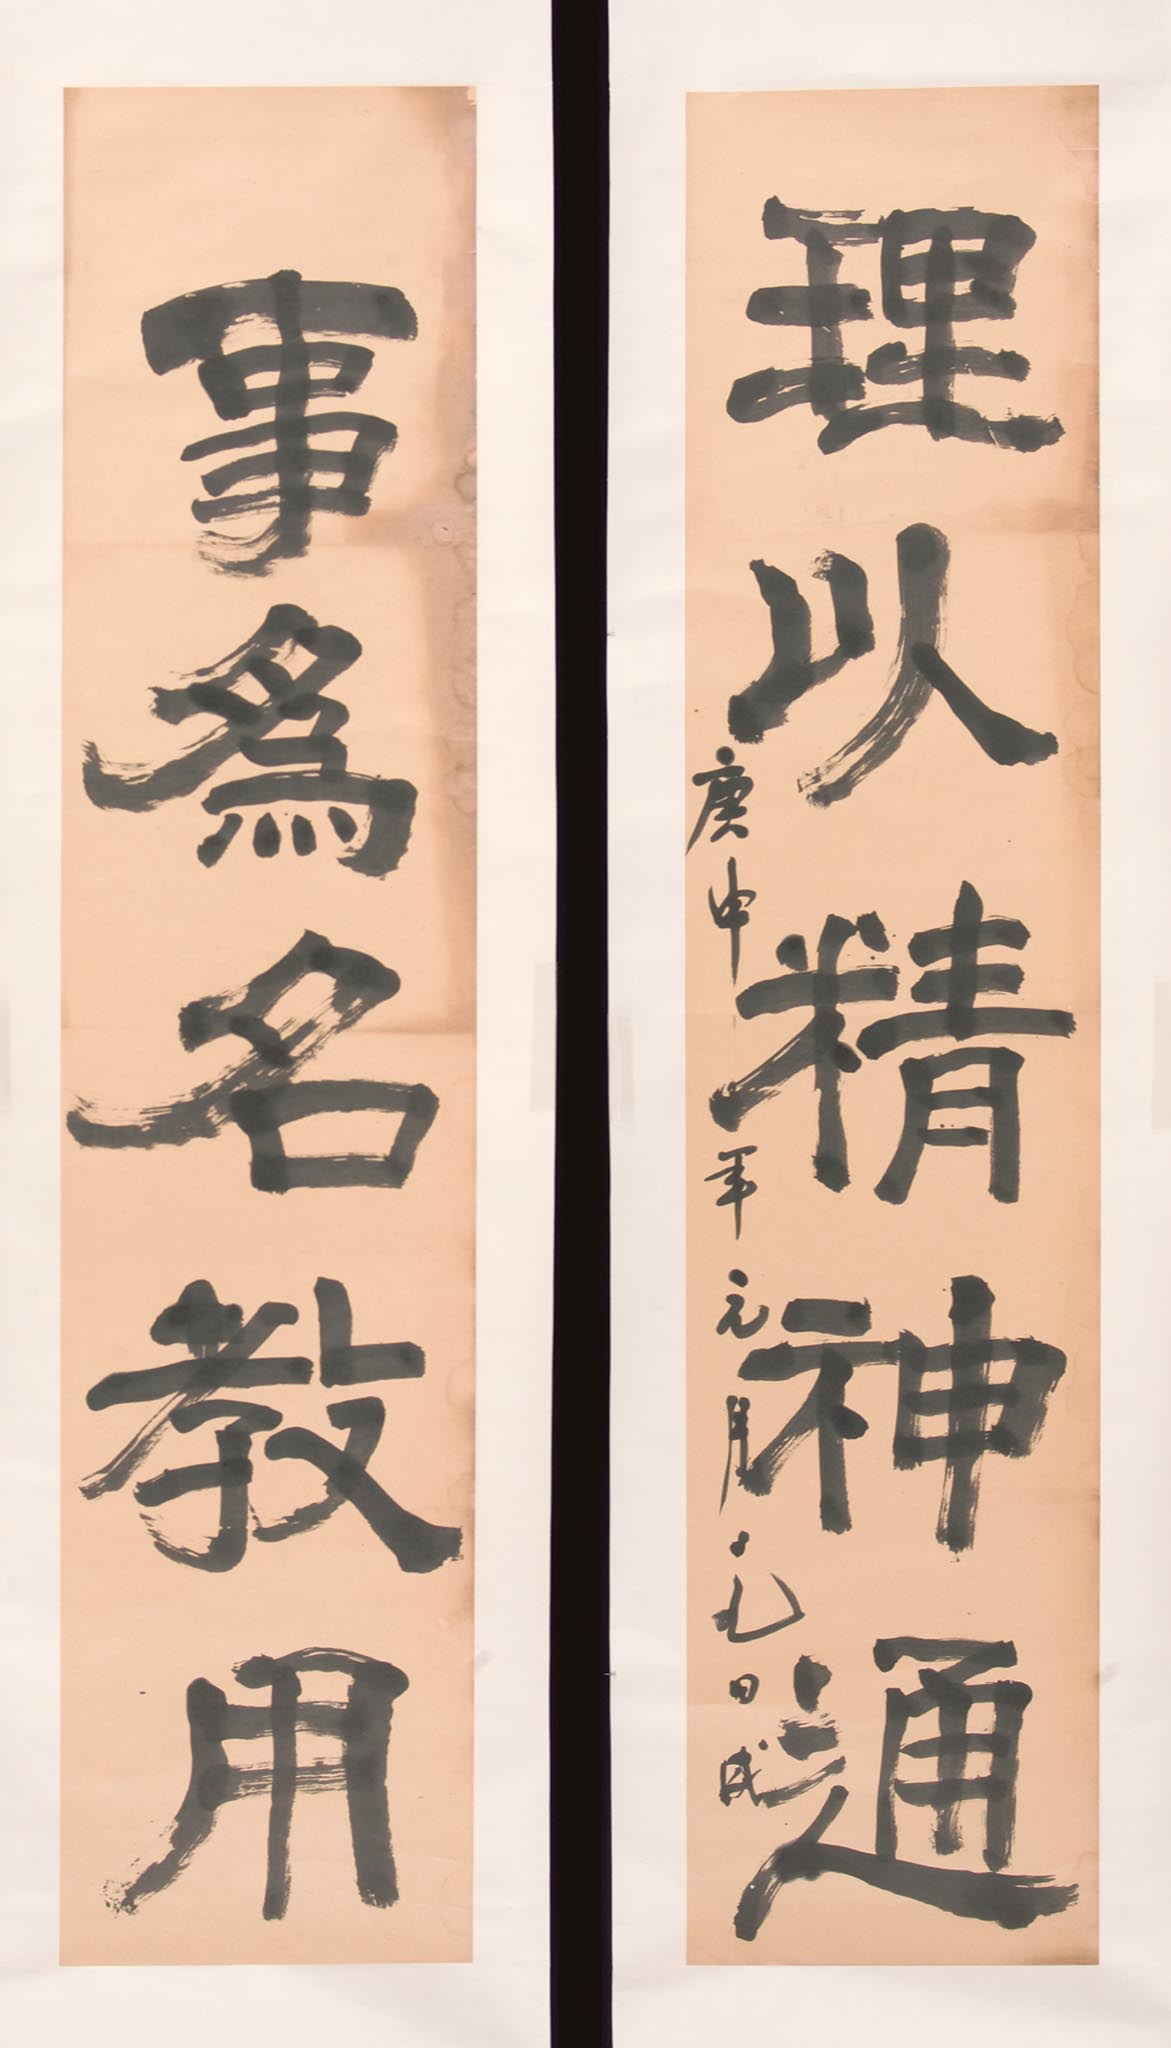 理以精神通
庚申年元月元日成
事為名教用